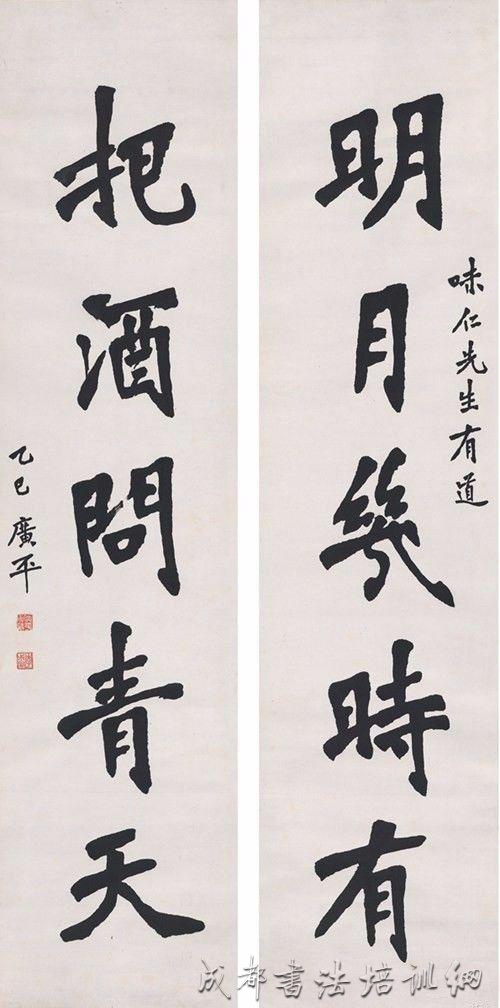 味仁先生有道
明月幾時有
把酒問青天
乙巳 廣平
成都書法培訓網